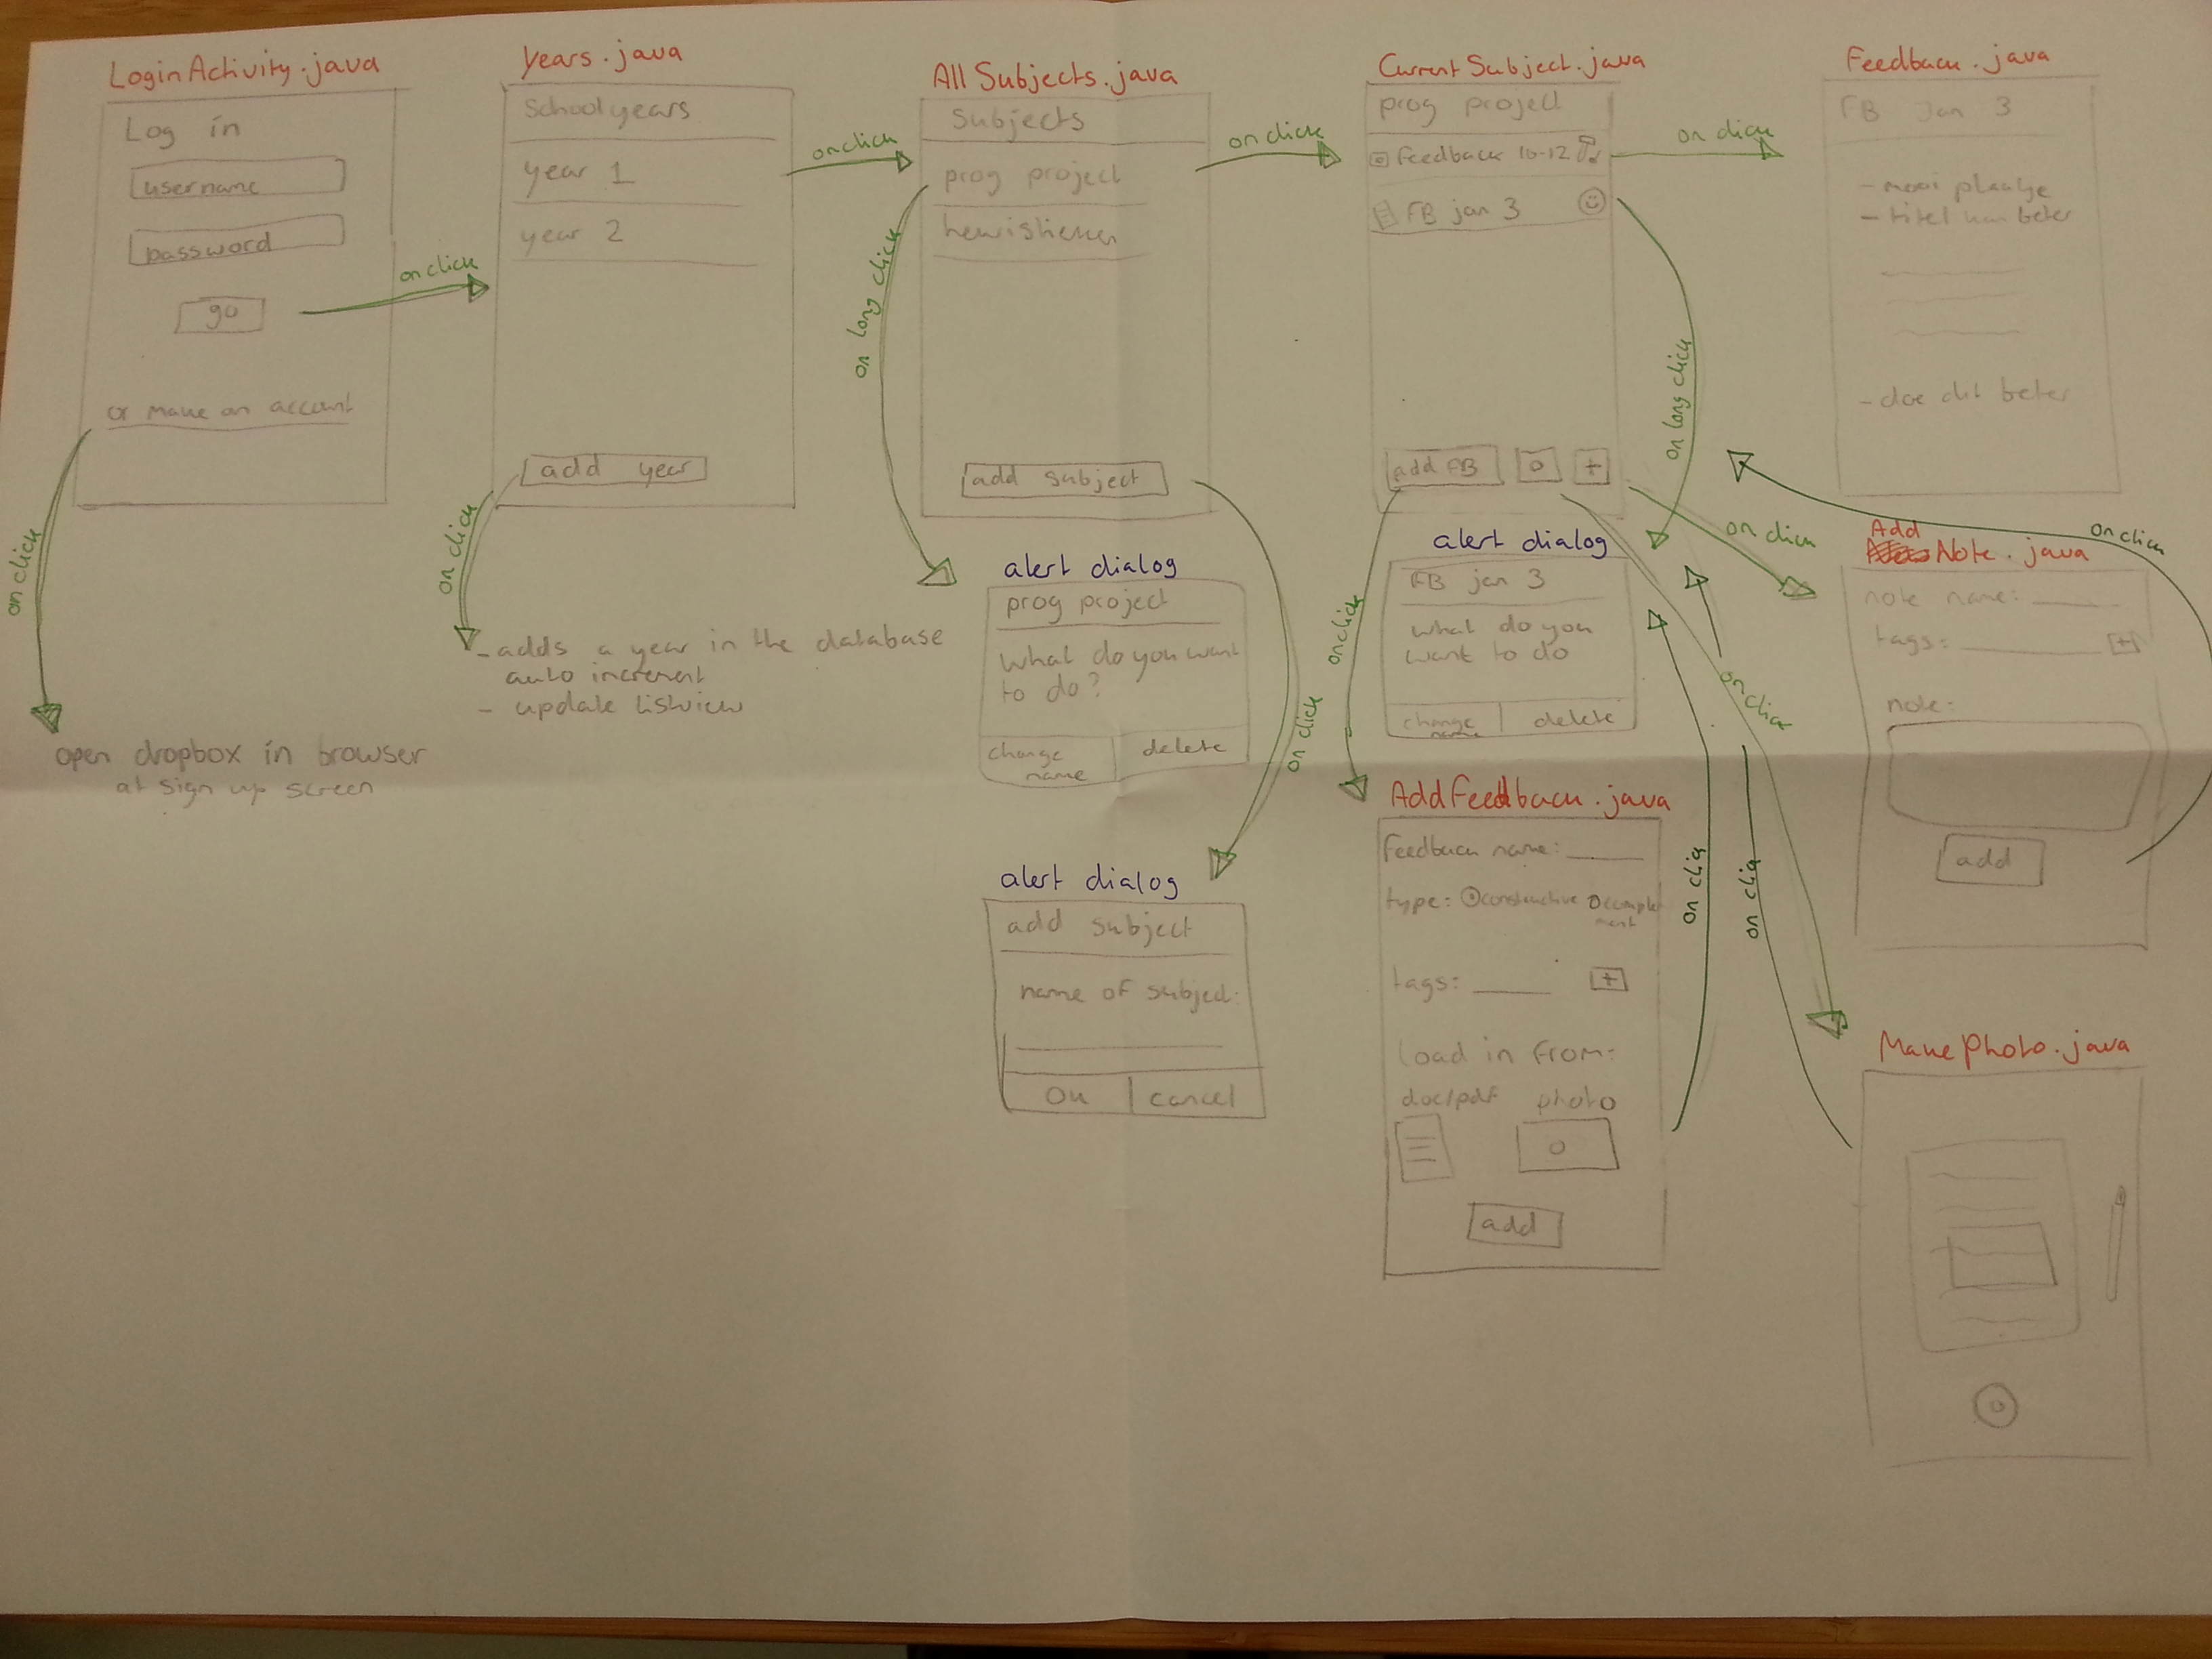 LoginActivity.java
Log in
username
password
go
or make an account
on click
on click
open dropbox in browser
at sign up screen
Years.java
Schoolyears
year 1
year 2
add year
on click
on click
- adds a year in the database
auto increment
- update listview
All Subjects.java
Subjects
prog project
add subject
on click
on long click
on click
alert dialog
prog project
What do you want
to do?
change
name
delete
alert dialog
add subject
name of subject:
Ok
cancel
Current Subject.java
prog project
Feedback 16-12
FB jan 3
add FB
+
on click
on long click
on click
on click
on click
alert dialog
FB jan 3
What do you
want to do
change
name
delete
AddFeedback.java
Feedback name:
type: constructive compli
ment
tags:
+
Load in from:
doc/pdf photo
add
on click
on click
Feedback.java
FB Jan 3
- mooi plaatje
- titel kan beter
- doe dit beter
on click
Add
Note.java
note name:
tags:
+
note:
add
Make Photo.java